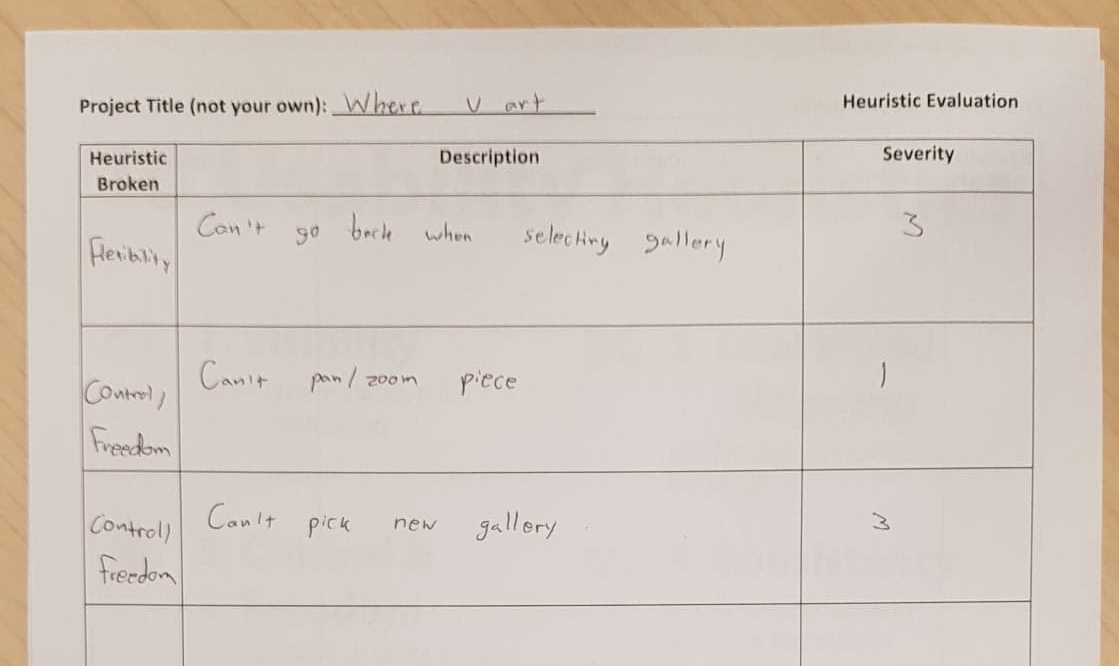 Project Title (not your own): Where U art
Heuristic Evaluation
Heuristic Broken
Description
Severity
Flexibility
Can't go back when selecting gallery
3
Control,
Freedom
Can't pan/zoom piece
1
Control,
freedom
Can't pick new gallery
3